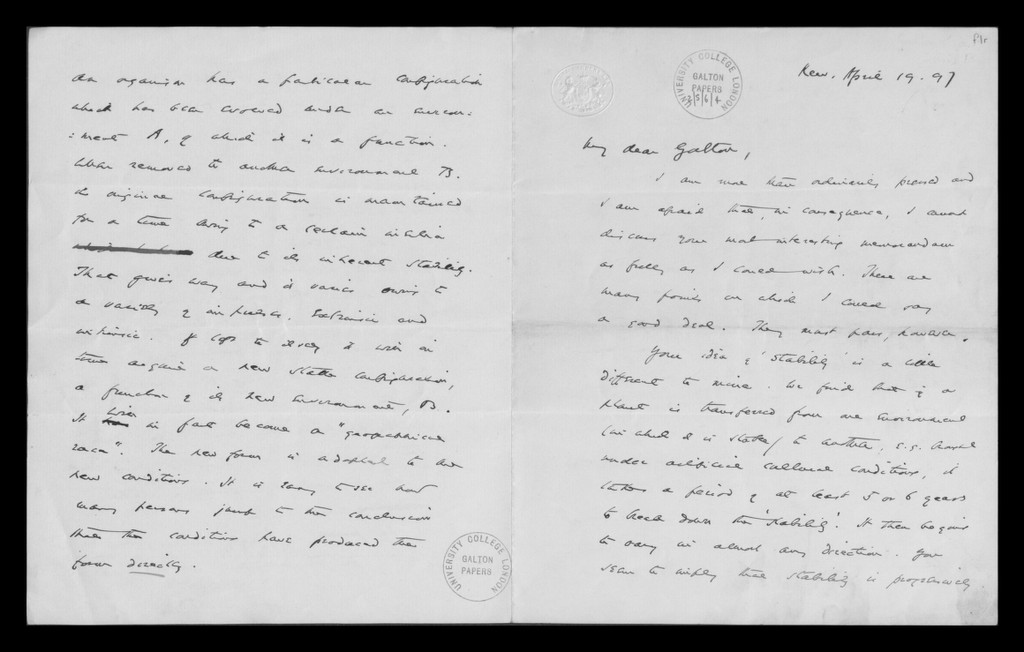 Kew. April 19. 97
My dear Galton,
I am more than ordinarily pressed and
I am afraid that, in consequence, I cannot
discuss your most interesting memorandum
as fully as I could wish. There are
many points on which I could say
a good deal. They must pass, however.
Your idea of 'stability' is a little
different to mine. We find that if a
plant is transferred from one environment
(in which it is stable) to another, e.g.
under artificial cultural conditions, it
takes a period of at least 5 or 6 years
to break down the 'stability'. It then begins
to vary in almost any direction. You
seem to imply that stability is progressively
An organism has a particular configuration
which has been evolved under an environ:
:ment A, of which it is a function.
When removed to another environment B.
its original configuration is maintained
for a time owing to a certain inertia
due to its inherent stability.
That gives way and it varies owing to
a variety of impulses, extrinsic and
intrinsic. If left to itself it will in
time acquire a new stable configuration,
a function of its new environment, B.
It will in fact become a "geographical
race". The new form is adapted to the
new conditions. It is easy to see how
many persons jump to the conclusion
that the conditions have produced the
form directly.
UNIVERSITY COLLEGE LONDON
GALTON
PAPERS
UNIVERSITY COLLEGE LONDON
GALTON
PAPERS